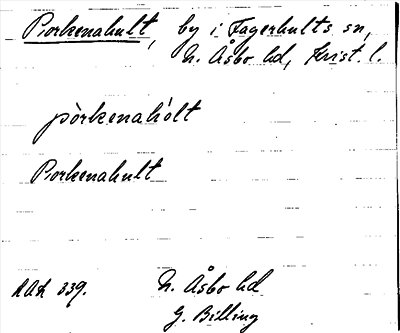 Porkenahult, by i Fagerhults sn,
N. Åsbo hd, Krist. l.
pòrkenahólt
Porkenahult
RAÄ 339. N. Åsbo hd
G. Billing